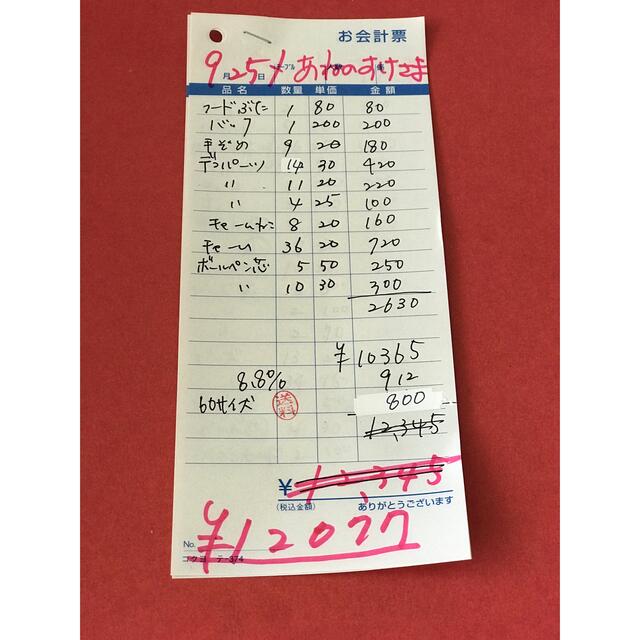 お会計票
9月25日 あねのすけさま
品名 数量 単価 金額
フードぶた 1 80 80
バック 1 200 200
手ぞめ 9 20 180
デコパーツ 14 30 420
〃 11 20 220
〃 4 25 100
チャーム 8 20 160
チャーム 36 20 720
ボールペン芯 5 50 250
〃 10 30 300
2630
¥10365
8.8% 912
60サイズ 送料 800
12,345
¥12,345
(税込金額) ありがとうございます
¥12077
No.
コクヨ テ-374